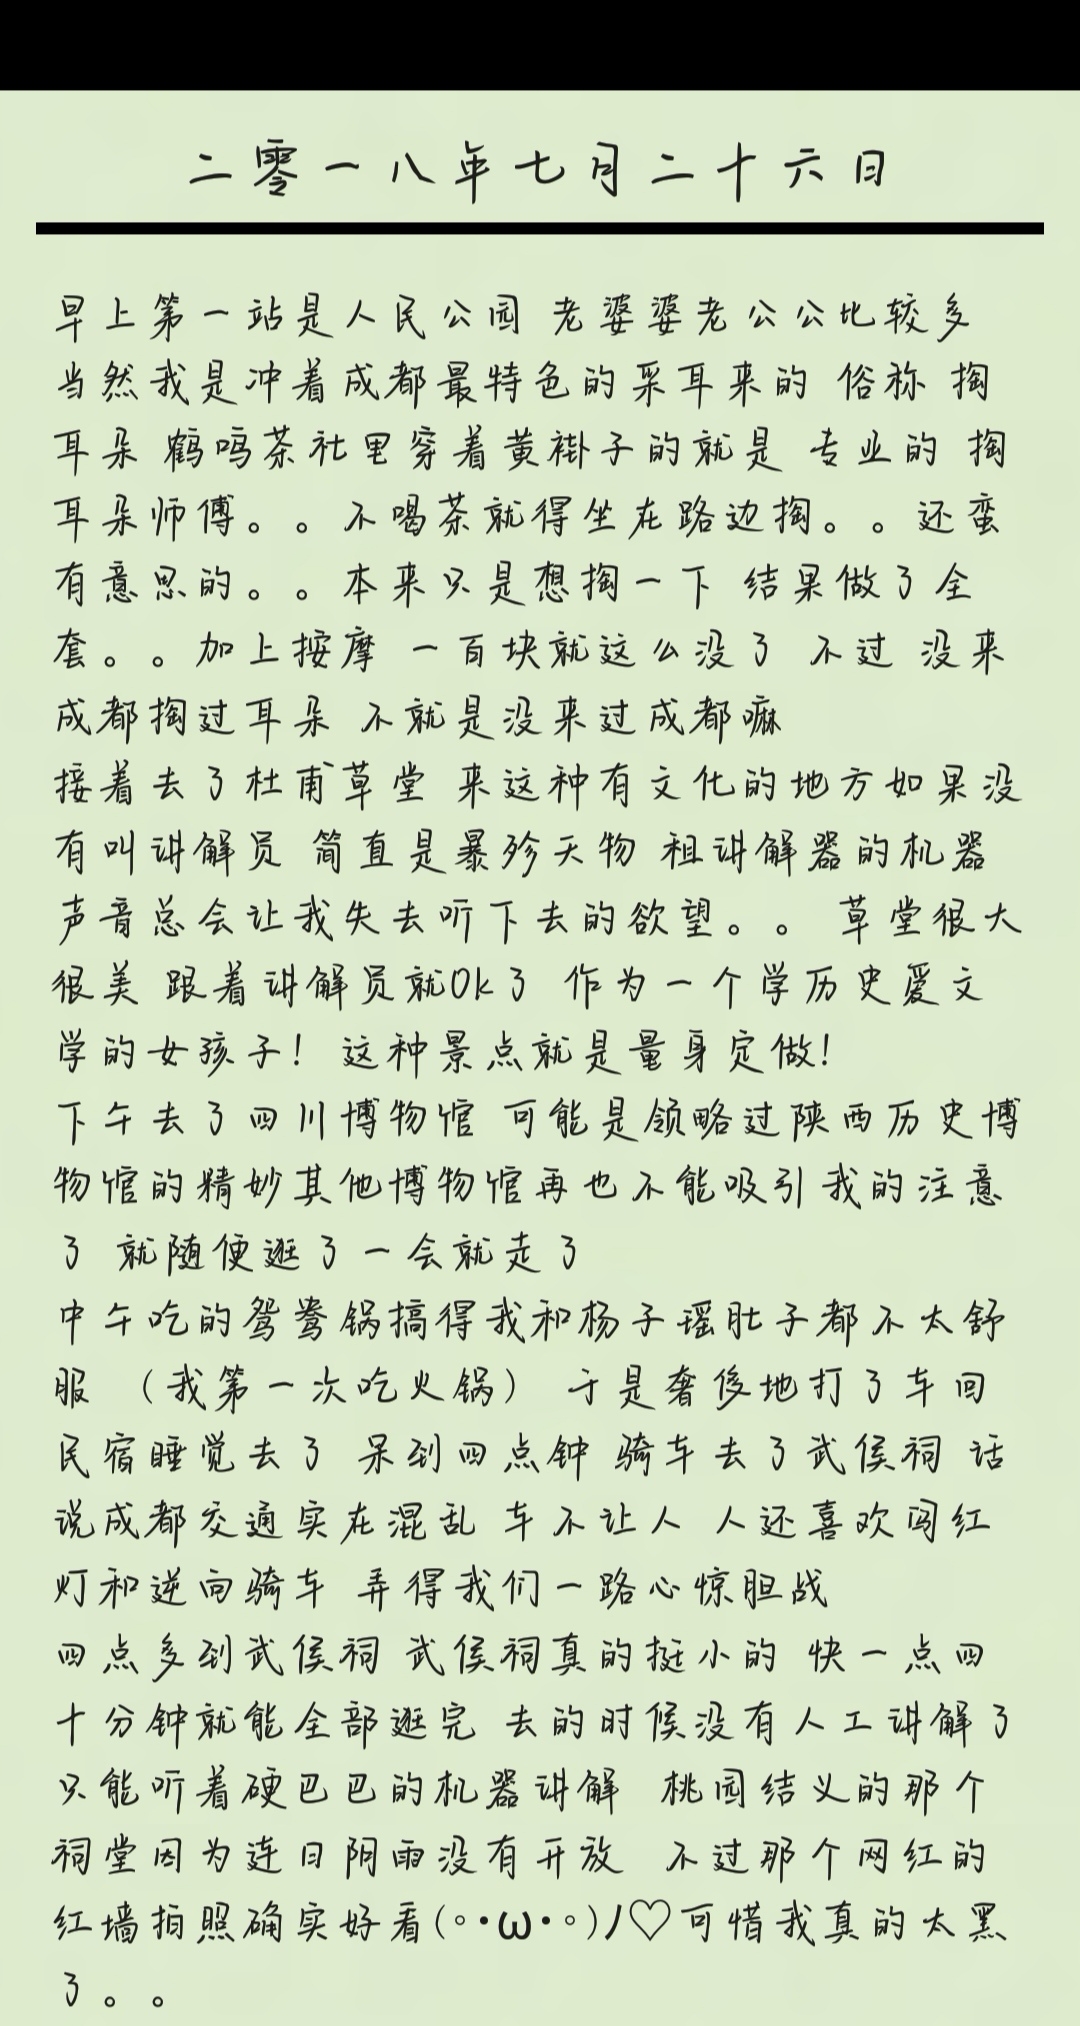 二零一八年七月二十六日
早上第一站是人民公园 老婆婆老公公比较多
当然我是冲着成都最特色的采耳来的 俗称 掏
耳朵 鹤鸣茶社里穿着黄褂子的就是 专业的 掏
耳朵师傅。。不喝茶就得坐在路边掏。。还蛮
有意思的。。本来只是想掏一下 结果做了全
套。。加上按摩 一百块就这么没了 不过 没来
成都掏过耳朵 不就是没来过成都嘛
接着去了杜甫草堂 来这种有文化的地方如果没
有叫讲解员 简直是暴殄天物 租讲解器的机器
声音总会让我失去听下去的欲望。。 草堂很大
很美 跟着讲解员就Ok了 作为一个学历史爱文
学的女孩子！这种景点就是量身定做！
下午去了四川博物馆 可能是领略过陕西历史博
物馆的精妙其他博物馆再也不能吸引我的注意
了 就随便逛了一会就走了
中午吃的鸳鸯锅搞得我和杨子瑶肚子都不太舒
服 （我第一次吃火锅） 于是奢侈地打了车回
民宿睡觉去了 呆到四点钟 骑车去了武侯祠 话
说成都交通实在混乱 车不让人 人还喜欢闯红
灯和逆向骑车 弄得我们一路心惊胆战
四点多到武侯祠 武侯祠真的挺小的 快一点四
十分钟就能全部逛完 去的时候没有人工讲解了
只能听着硬巴巴的机器讲解 桃园结义的那个
祠堂因为连日阴雨没有开放 不过那个网红的
红墙拍照确实好看(◦•ω•◦)ﾉ♡可惜我真的太黑
了。。